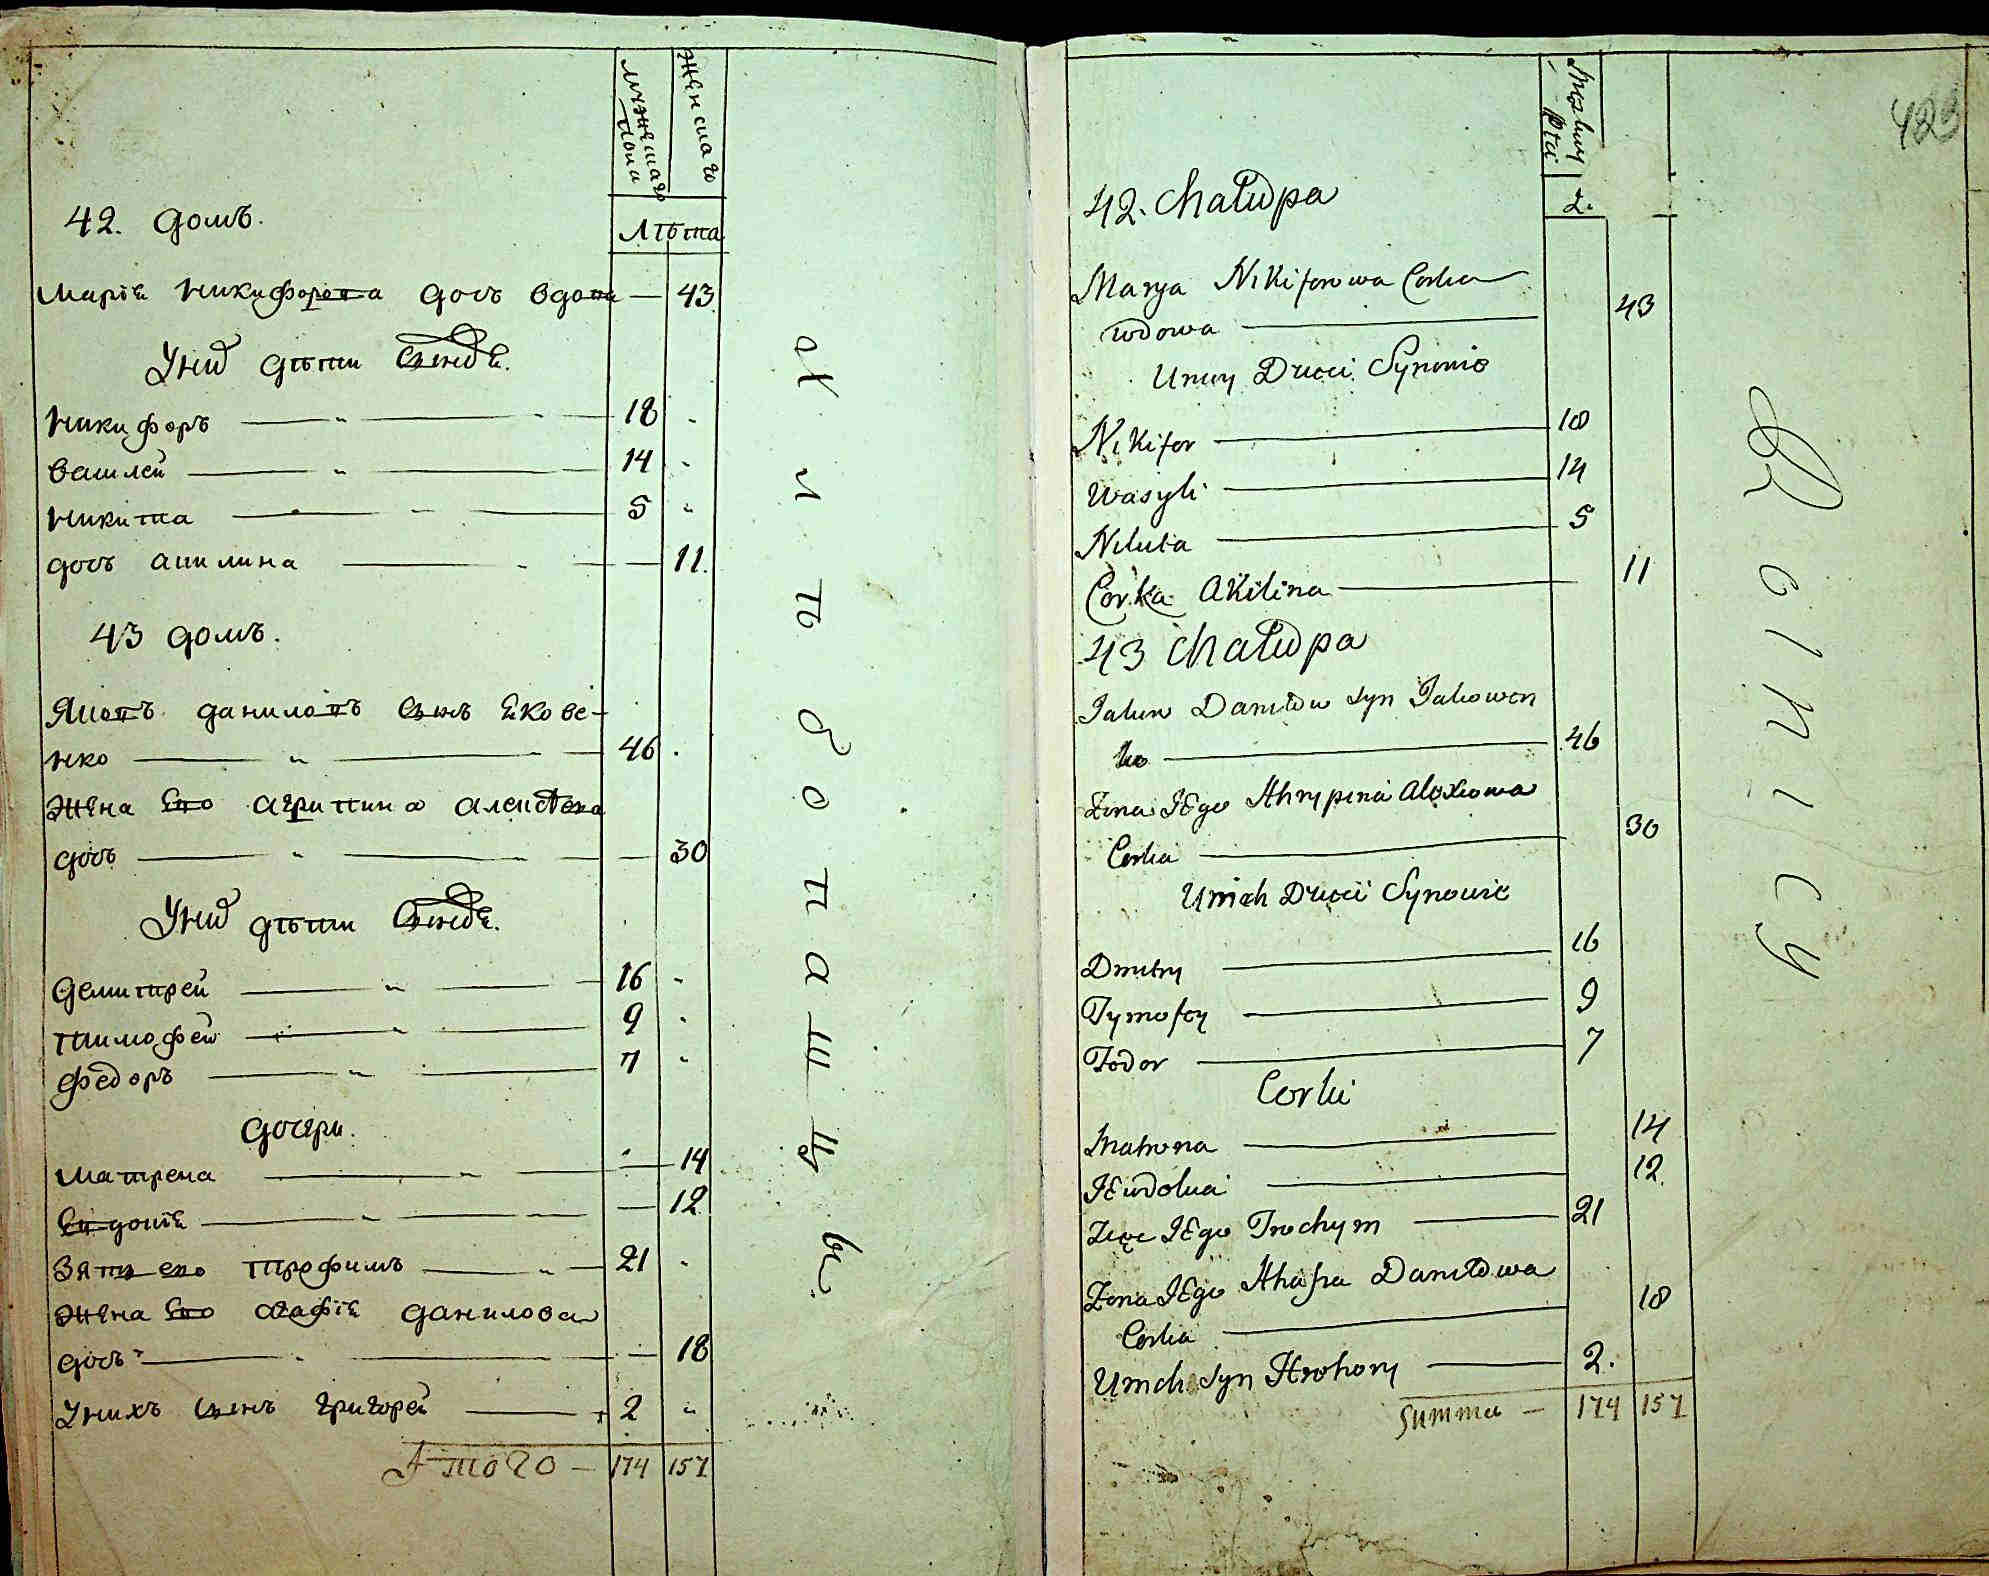 мужескаго пола
женскаго
42. домъ.
лѣта
Марїя Никифорова дочь вдова — 43
У ней дѣти сыновѣ.
Никифоръ — 18
Василей — 14
Никита — 5
дочь Акилина — 11.
43 домъ.
Яковъ даниловъ сынъ Яковѣ-
нко — 46
жена его агрипина алексѣева
дочь — 30
У ниѵ дѣти сыновѣ.
Демитрей — 16
тимофей — 9
федоръ — 7
дочери.
матрена — 14
Евдокїя — 12
Зять его трофимъ — 21
жена его агафїя данилова
дочь — 18
У нихъ сынъ григорей — 2
Итого — 174 157
хлѣбопашцы
423
Męskiey
Płci
2.
42. Chałupa
Marya Nikiforowa Corka
wdowa — 43
U niey Dzieci Synowie
Nikifor — 18
Wasyli — 14
Nikita — 5
Corka Akilina — 11
43 Chałupa
Jakow Daniłow syn Jakowen
ko — 46
Żona JEgo Ahrypina Alexiowa
Corka — 30
U nich Dzieci Synowie
Dmitry — 16
Tymofey — 9
Fodor — 7
Corki
Matrona — 14
JEwdokia — 12.
Zięć JEgo Trochym — 21
Żona JEgo Ahafia Daniłowa
Corka — 18
U nich syn Hrohory — 2.
Summa — 174 157
Rolnicy